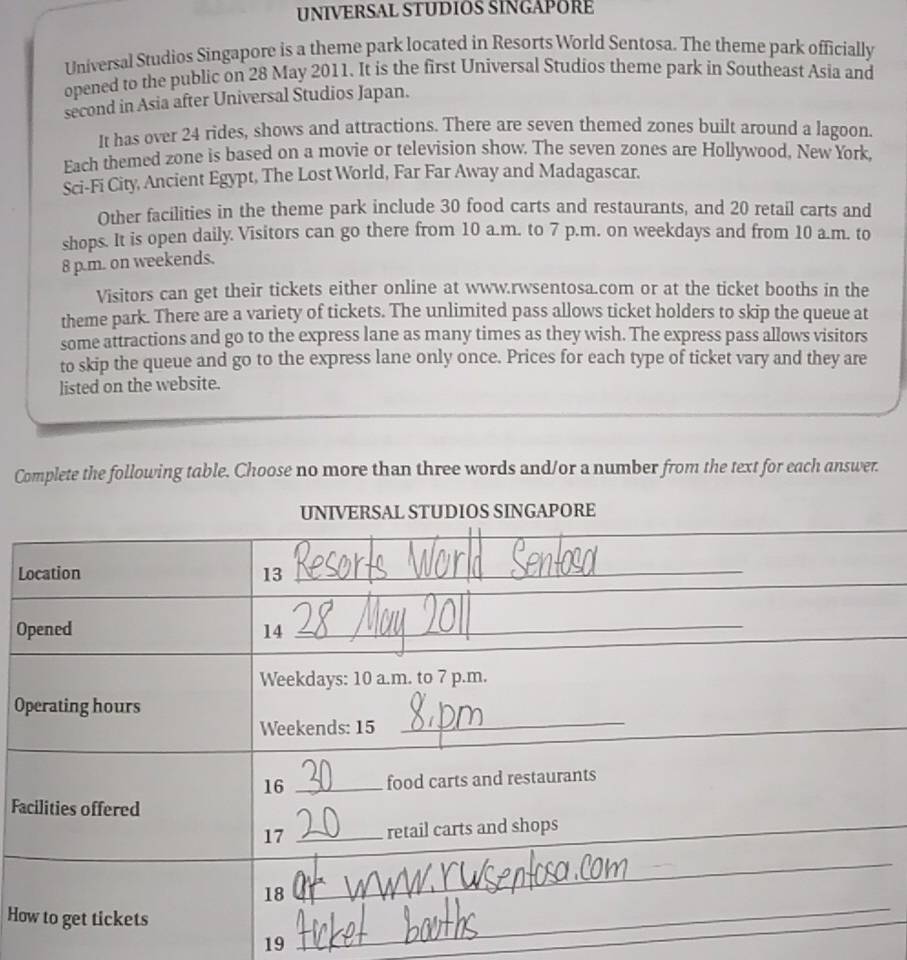 UNIVERSAL STUDIOS SINGAPORE
Universal Studios Singapore is a theme park located in Resorts World Sentosa. The theme park officially
opened to the public on 28 May 2011. It is the first Universal Studios theme park in Southeast Asia and
second in Asia after Universal Studios Japan.
It has over 24 rides, shows and attractions. There are seven themed zones built around a lagoon.
Each themed zone is based on a movie or television show. The seven zones are Hollywood, New York,
Sci-Fi City, Ancient Egypt, The Lost World, Far Far Away and Madagascar.
Other facilities in the theme park include 30 food carts and restaurants, and 20 retail carts and
shops. It is open daily. Visitors can go there from 10 a.m. to 7 p.m. on weekdays and from 10 a.m. to
8 p.m. on weekends.
Visitors can get their tickets either online at www.rwsentosa.com or at the ticket booths in the
theme park. There are a variety of tickets. The unlimited pass allows ticket holders to skip the queue at
some attractions and go to the express lane as many times as they wish. The express pass allows visitors
to skip the queue and go to the express lane only once. Prices for each type of ticket vary and they are
listed on the website.
Complete the following table. Choose no more than three words and/or a number from the text for each answer.
UNIVERSAL STUDIOS SINGAPORE
Location 13 Resorts World Sentosa
Opened 14 28 May 2011
Weekdays: 10 a.m. to 7 p.m.
Operating hours
Weekends: 15 8.pm
16 30 food carts and restaurants
Facilities offered
17 20 retail carts and shops
18 at www.rwsentosa.com
How to get tickets
19 ticket booths